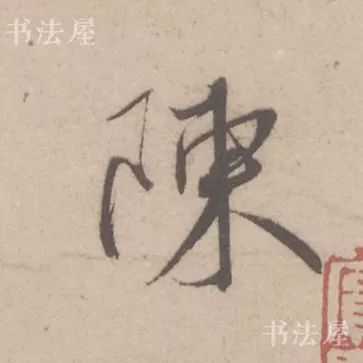 书法屋
陳
书法屋